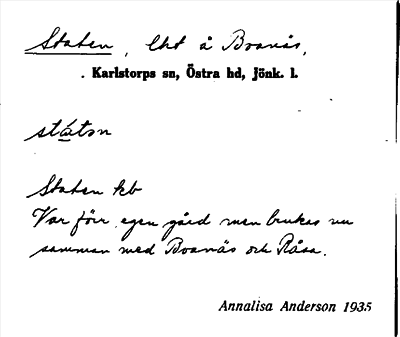 Staten, lht å Boanäs,
Karlstorps sn, Östra hd, Jönk. l.
státn
Staten kb
Var förr egen gård men brukas nu
samman med Boanäs och Råsa.
Annalisa Anderson 1935